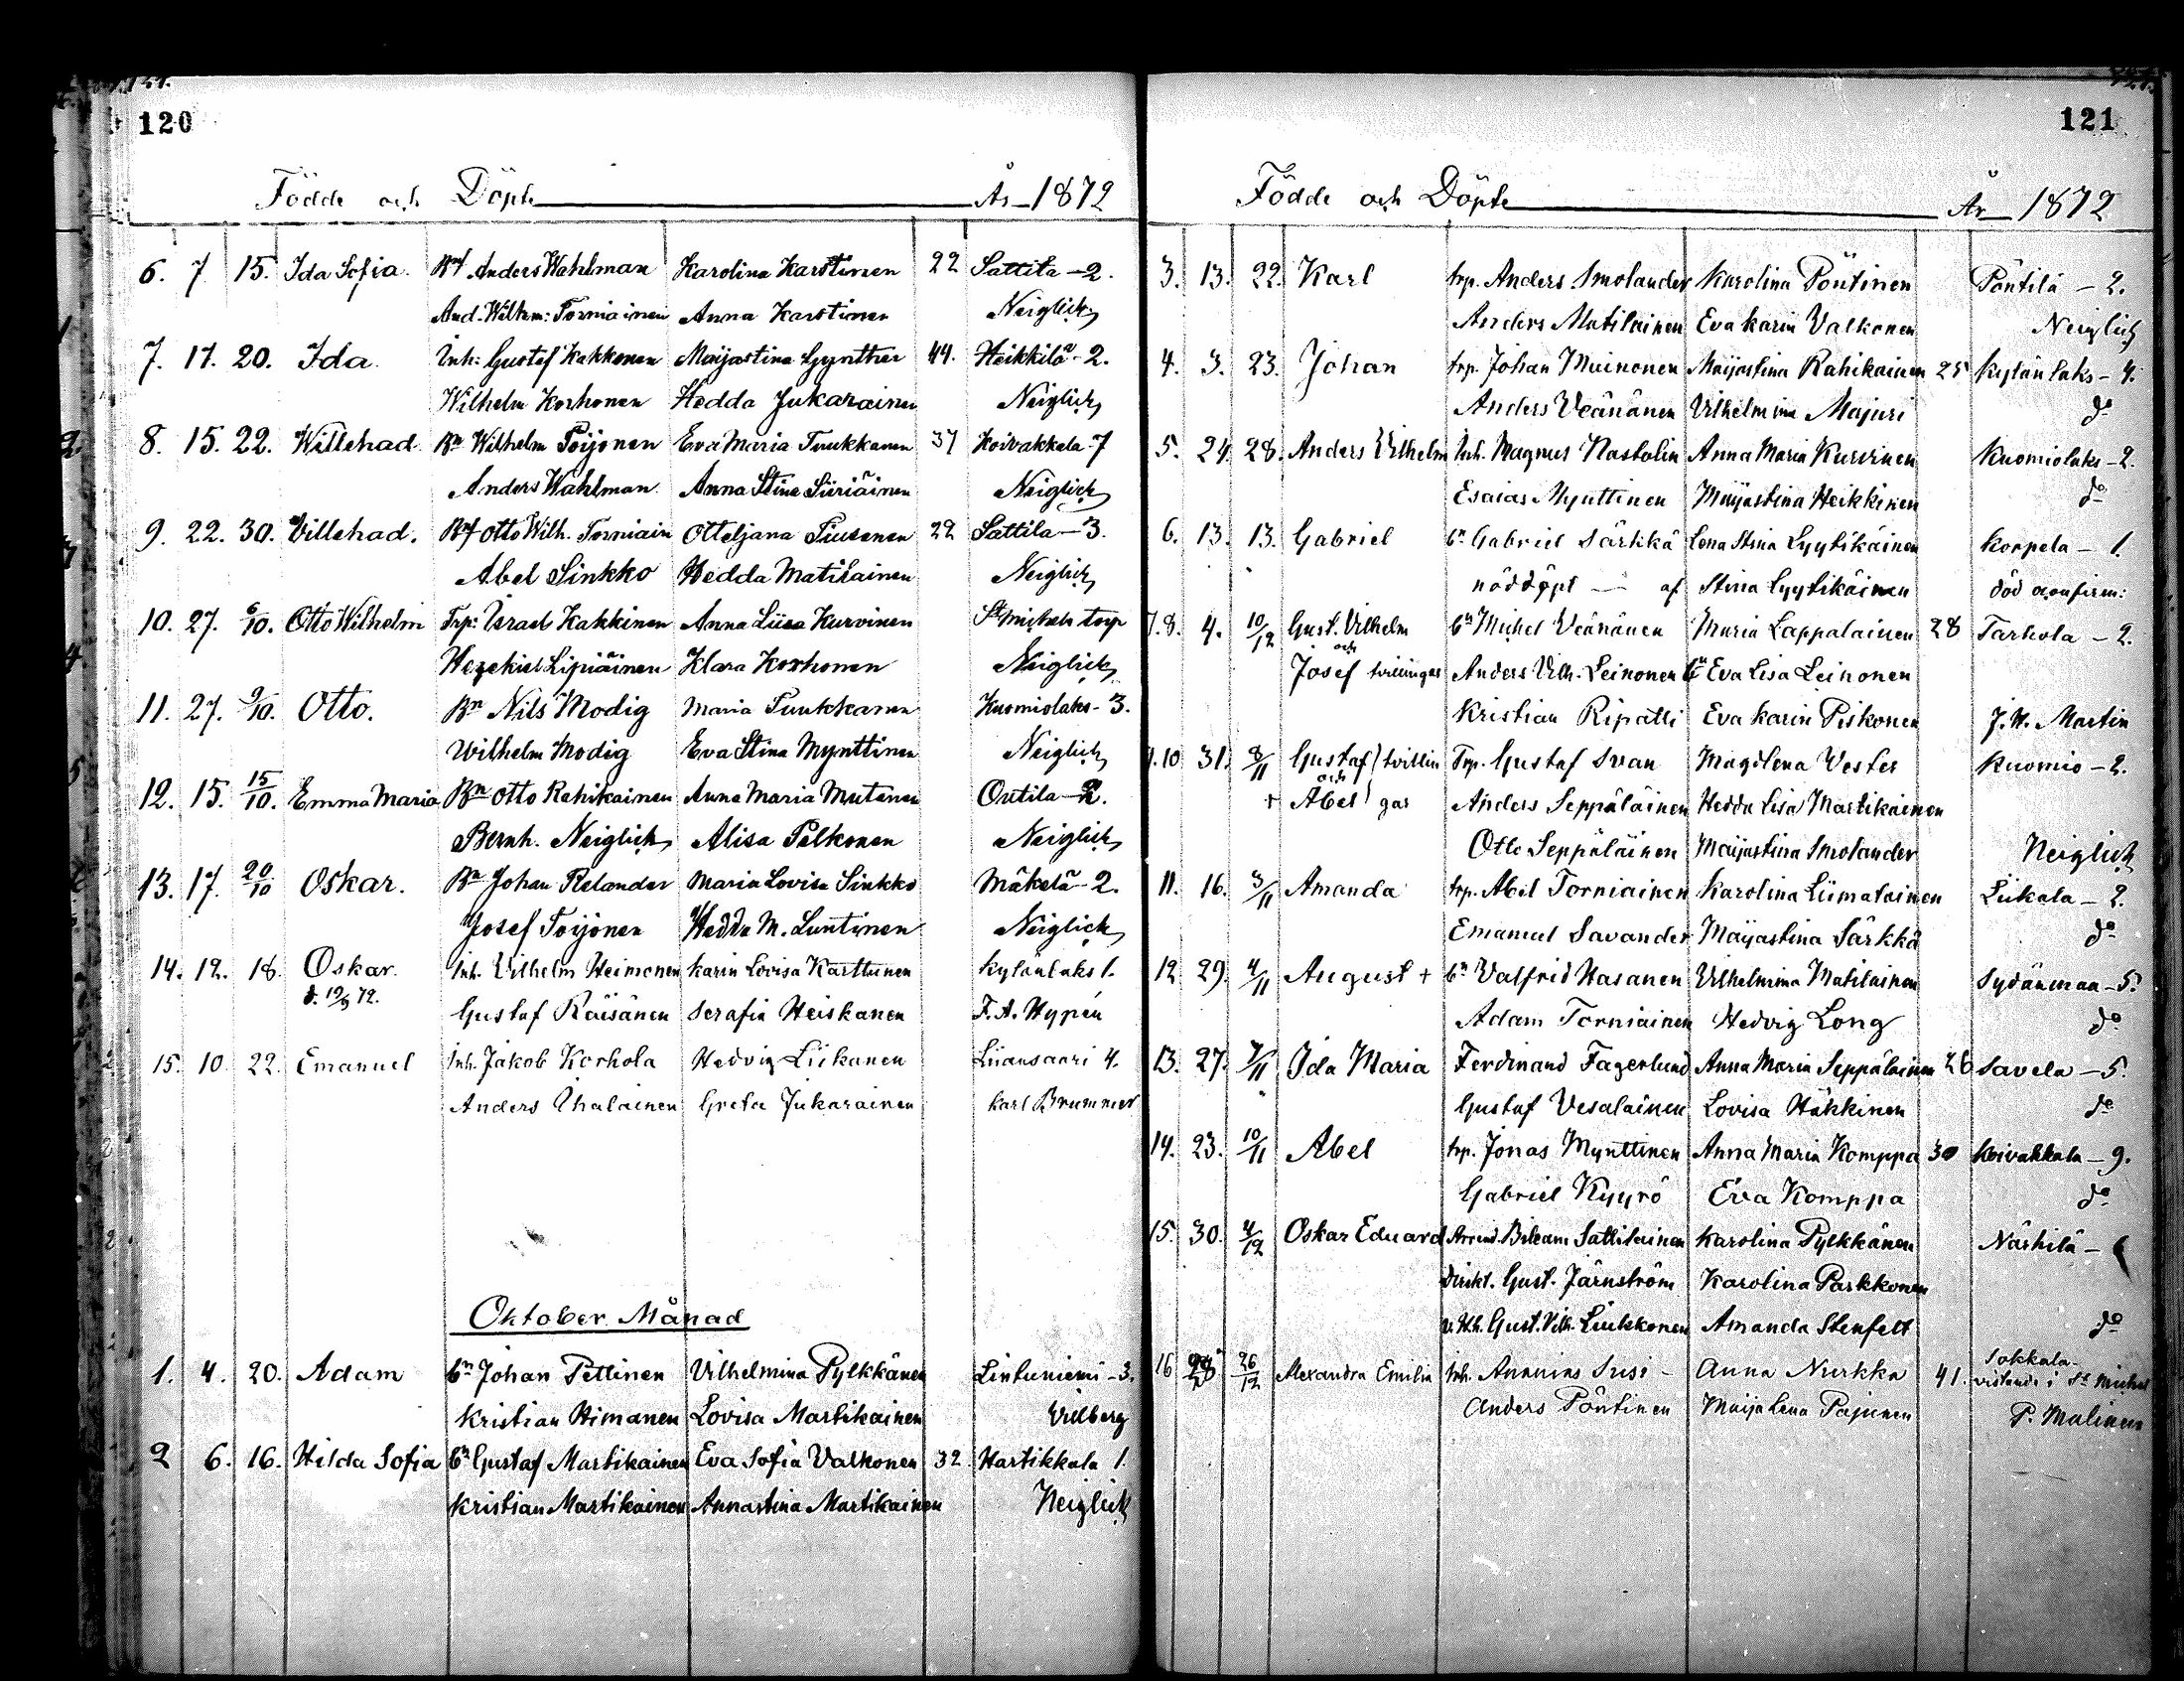 120
Födde och Döpte År 1872
6. 7. 15. Ida Sofia. Anders Wahlman Karolina Karstinen 22 Sattila - 2.
And. Wilhm: Torniainen Anna Karstinen Neiglick
7. 17. 20. Ida. Inh: Gustaf Kakkonen Maijastina Gynther 44. Heikkilä - 2.
Wilhelm Korhonen Hedda Jukarainen Neiglick
8. 15. 22. Willehad. Bn Wilhelm Poijonen Eva Maria Tuukkanen 37 Koivakkala - 7
Anders Wahlman. Anna Stina Siiriäinen Neiglick
9. 22. 30. Villehad. Otto Wilh. Torniain Otteljana Tiusanen 22 Sattila - 3.
Abel Sinkko Hedda Matilainen Neiglick
10. 27. 6/10. Otto Wilhelm Trp: Israel Kakkinen Anna Liisa Kurvinen St Michels torp
Hezekiel Lipiäinen Klara Korhonen Neiglick
11. 27. 9/10. Otto. Bn Nils Modig Maria Tuukkanen Kuomiolaks - 3.
Wilhelm Modig Eva Stina Mynttinen Neiglick
12. 15. 15/10. Emma Maria Bn Otto Rahikainen Anna Maria Mutanen Outila - 2.
Bernh. Neiglick Alisa Pelkonen Neiglick
13. 17. 20/10 Oskar. Bn Johan Relander Maria Lovisa Sinkko Mäkelä - 2.
Josef Toijonen Hedda M. Luntinen Neiglick
14. 12. 18. Oskar. Inh. Vilhelm Heimonen Karin Lovisa Karttunen Kylänlaks 1.
d. 19/9 72. Gustaf Räisänen Serafia Heiskanen F. A. Hypén
15. 10. 22. Emanuel Inh. Jakob Korhola Hedvig Liikanen Liiansaari 4.
Anders Ihalainen Greta Jukarainen Karl Brummer
Oktober Månad
1. 4. 20. Adam bn Johan Pettinen Vilhelmina Pylkkänen Lintuniemi - 3.
Kristian Himanen Lovisa Martikainen Villberg
2 6. 16. Hilda Sofia bn Gustaf Martikainen Eva Sofia Valkonen 32. Hartikkala 1.
Kristian Martikainen Annastina Martikainen Neiglick
121
Födde och Döpte År 1872
3. 13. 22. Karl trp. Anders Smolander Karolina Pöntinen Pöntilä - 2.
Anders Matilainen Eva Karin Valkonen Neiglick
4. 3. 23. Johan trp. Johan Muinonen Maijastina Rahikainen 25 Kylänlaks - 4.
Anders Veänänen Vilhelmina Majuri do
5. 24. 28. Anders Vilhelm Inh. Magnus Nastolin Anna Maria Kurvinen Kuomiolaks - 2.
Esaias Mynttinen Maijastina Heikkinen do
6. 13. 13. Gabriel bn Gabriel Särkkä Lena Stina Lyytikäinen Korpela - 1.
nöddöpt - af Stina Lyytikäinen död oconfirm:
7.8. 4. 10/12 Gust. Vilhelm bn Michel Veänänen Maria Lappalainen 28 Tarhola - 2.
och
Josef tvillingar Anders Vilh. Leinonen Eva Lisa Leinonen
Kristian Ripatti Eva Karin Piskonen J. H. Martin
9.10 31. 8/11 Gustaf } tvillin Trp. Gustaf Svan Magdlena Vester Kuomio - 2.
och
+ Abel } gar Anders Seppäläinen Hedda Lisa Martikainen
Otto Seppäläinen Maijastina Smolander Neiglick
11. 16. 3/11 Amanda trp. Abel Torniainen Karolina Liimatainen Liikala - 2.
Emanuel Savander Maijastina Särkkä do
12 29. 4/11 August + bn Valfrid Hasanen Vilhelmina Matilainen Sydänmaa - 5.
Adam Torniainen Hedvig Long do
13. 27. 7/11 Ida Maria Ferdinand Fagerlund Anna Maria Seppäläinen 26 Savela - 5.
Gustaf Vesalainen Lovisa Häkkinen do
14. 23. 10/11 Abel trp. Jonas Mynttinen Anna Maria Komppa 30 Koivakkala - 9.
Gabriel Kyyrö Eva Komppa do
15. 30. 4/12 Oskar Eduard Arrend. Bileam Sattilainen Karolina Pylkkänen Närhilä -
Direkt. Gust. Järnström Karolina Parkkonen
Gust. Vilh. Liukkonen Amanda Stenfelt do
16 26/12 Alexandra Emilia Inh. Ananias Susi - Anna Nurkka 41. Sokkala vistande i St Michel
Anders Pöntinen Maija Lena Pajunen P. Malinen